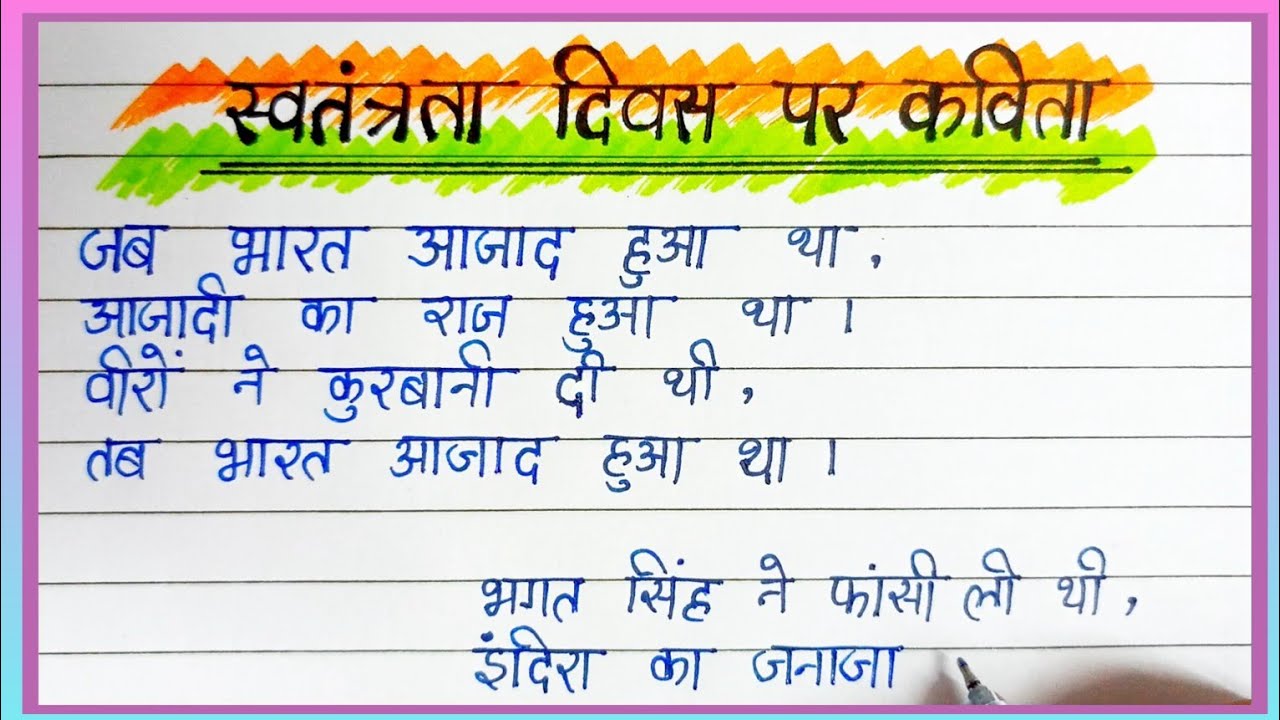 स्वतंत्रता दिवस पर कविता
जब भारत आजाद हुआ था,
आजादी का राज हुआ था।
वीरों ने कुरबानी दी थी,
तब भारत आजाद हुआ था।
भगत सिंह ने फांसी ली थी,
इंदिरा का जनाजा